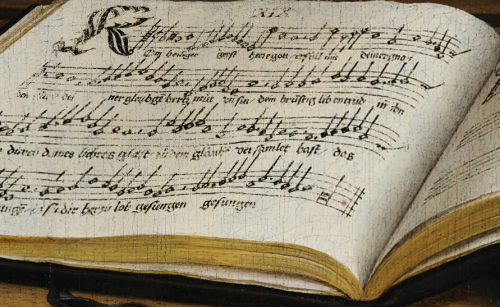 XIX
heiliger geist herregott erfüll mit deiner gna
dei ner gleubgē hertz mut vñ sin dein brustig lib entzud in ihn
o durch deines lichtes glast in dem glaubē versamlet hast das
sei dir her zu lob gesungen gesungen